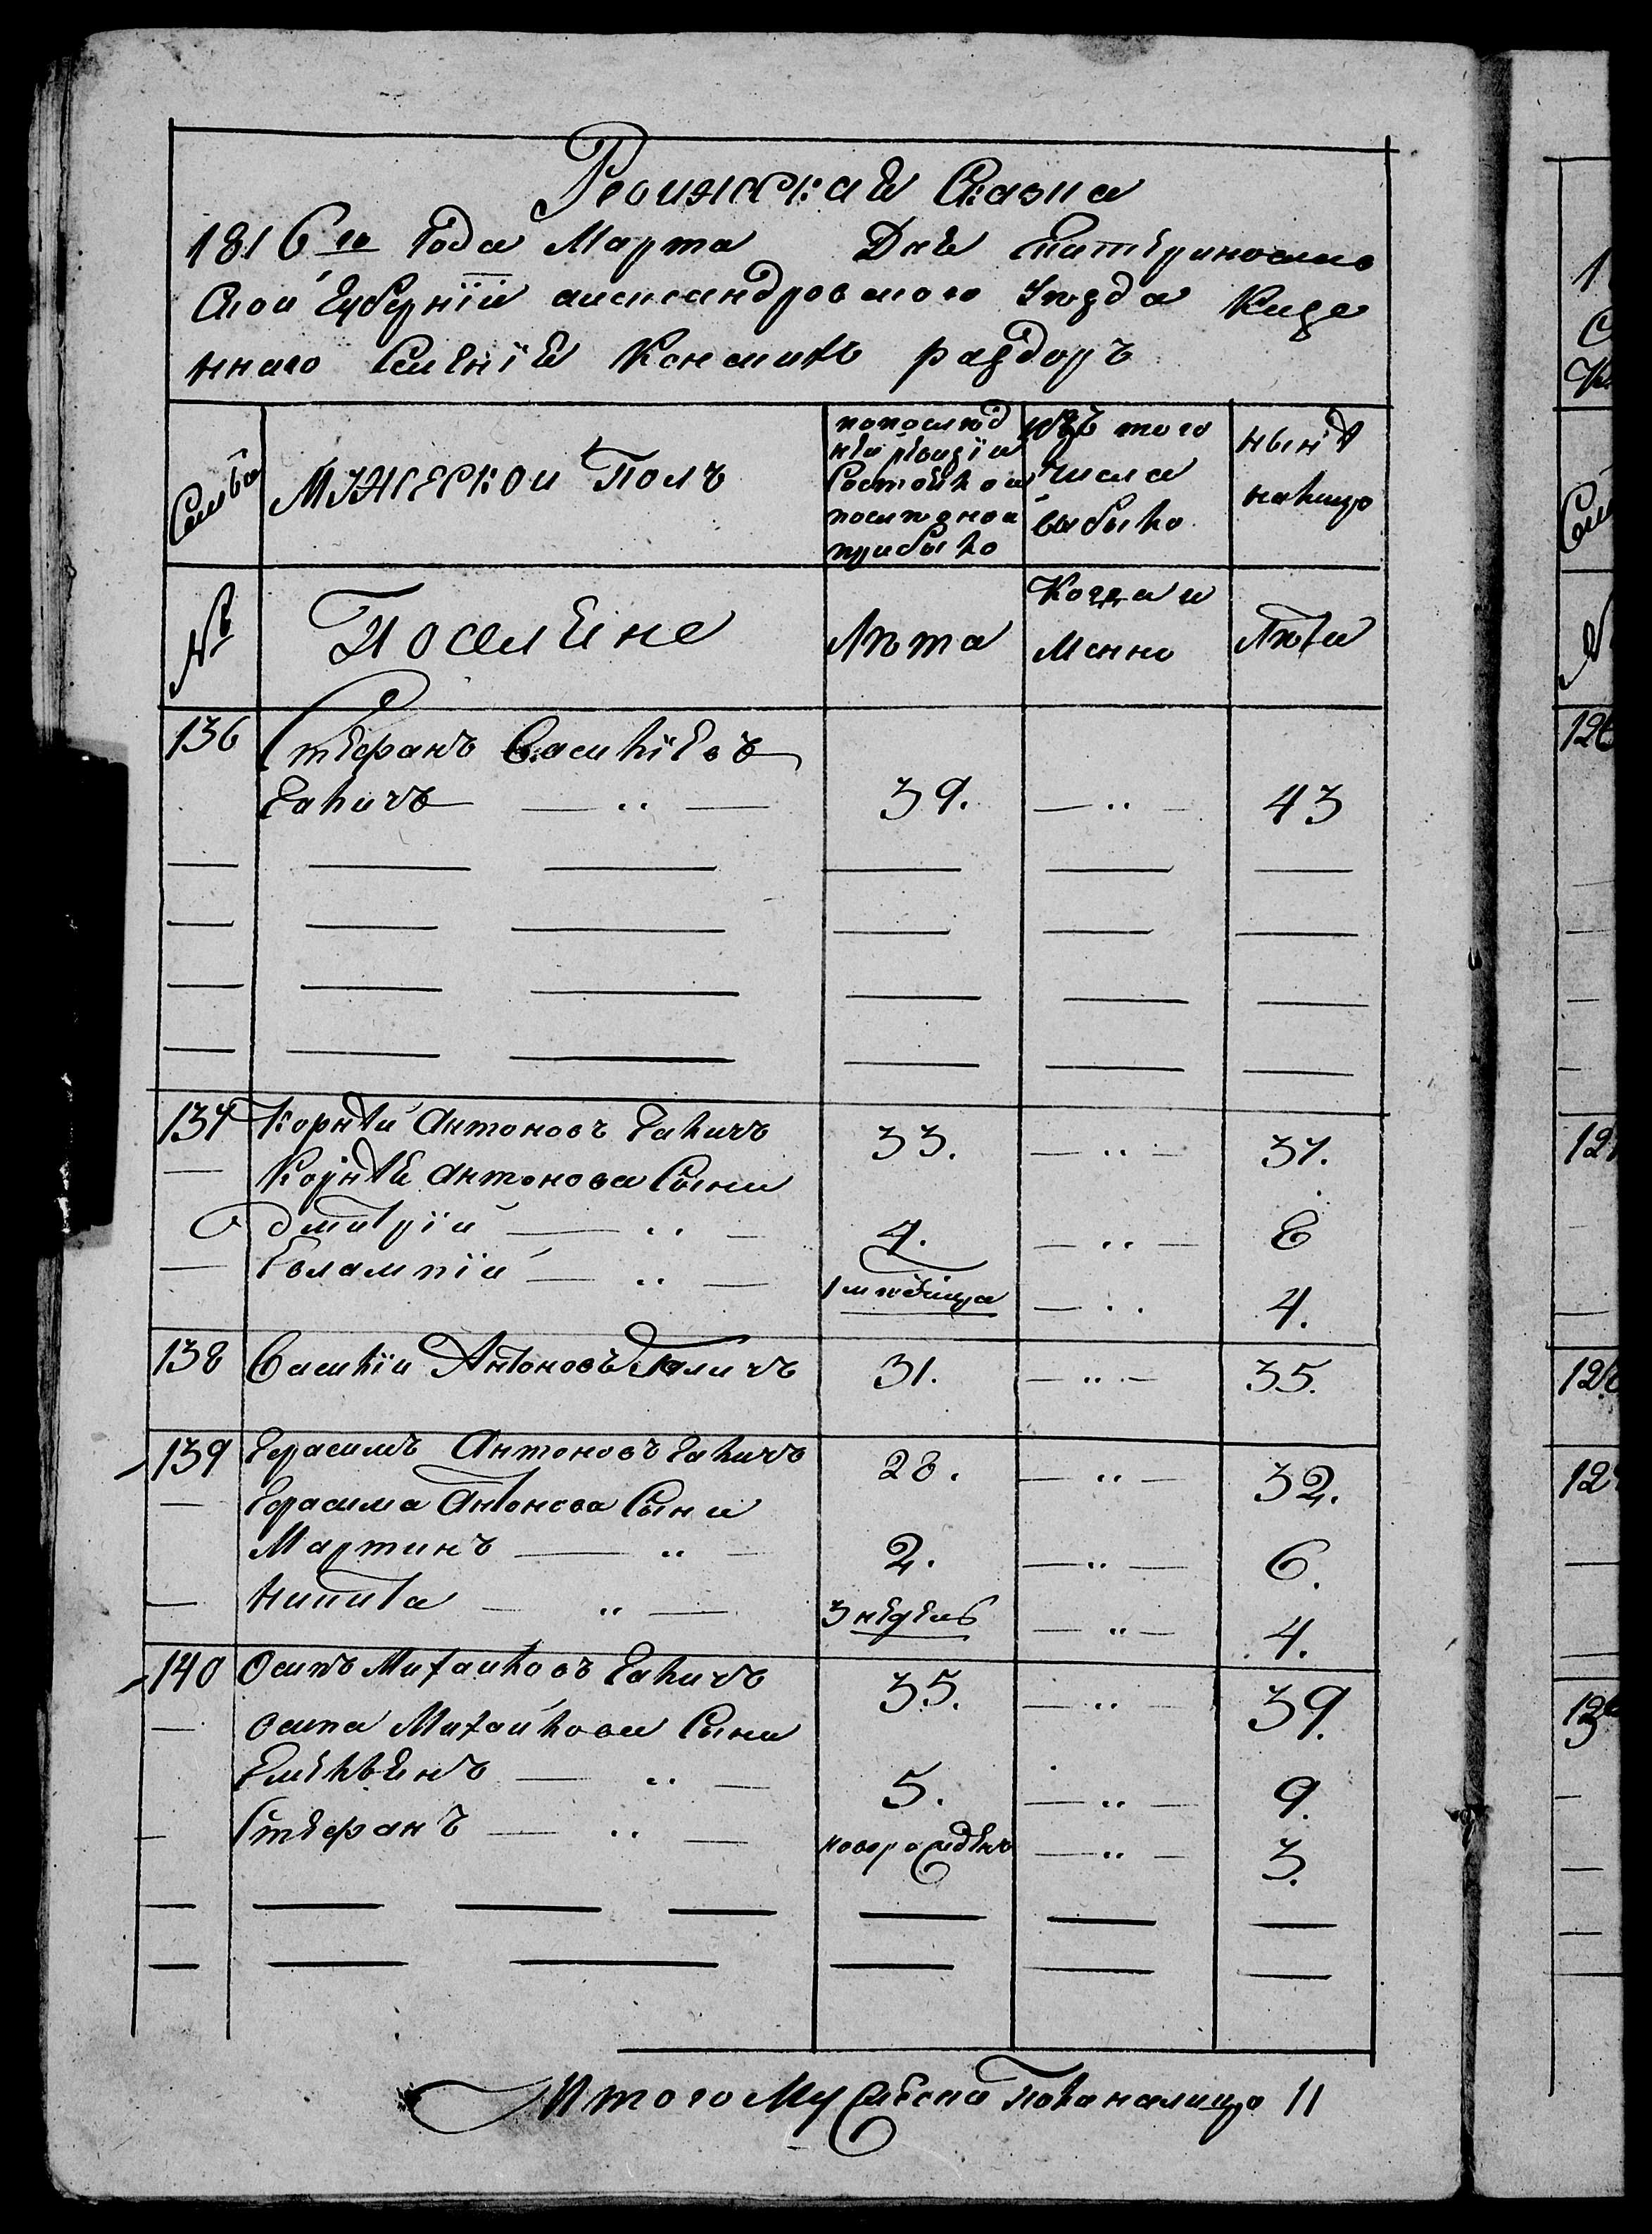 Ревижская Сказка
1816го Года Марта Дня Екатеринославо
Ской Губернїи александровского уезда Казе
ннаго Селенїя Конскихъ раздоръ
Семьи
Мужескои Полъ
попослѣд
неи ревизїи
Состояло и
послѣ оной
прибыло
изъ того
числа
выбыло
нынѣ
налицо
№
Поселяне
Лѣта
Когда и
менно
Лѣта
136 Стефанъ Василїевъ
Галичъ — " — 39. — " — 43
137 Корнѣй Антоновъ Галичъ 33. — " — 37.
— Корнѣя Антонова Сыни
Дмитрїй — " — 4. — " — 8
— Евлампїй — " — 1 мѣсяца — " 4.
138 Василїи Антоновъ Галичъ 31. — " — 35.
139 Герасимъ Антоновъ Галичъ 28. — " — 32.
— Герасима Антонова Сыни
Мартинъ — " — 2. — " — 6.
— Никита — " — 3 недель — " — 4.
140 Осипъ Михайловъ Галичъ 35. — " — 39.
— Осипа Михайлова Сыни
Емельянъ — " — 5. — " — 9.
— Стефанъ — " — новорожденъ — " — 3.
Итого Мужеска Пола налицо 11
1
С
К
Сем
№
126
127
128
129
130